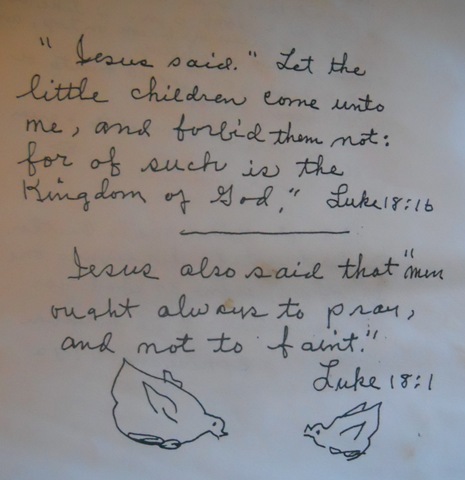 " Jesus said." Let the
little children come unto
me, and forbid them not:
for of such is the
Kingdom of God." Luke 18:16
Jesus also said that "men
ought always to pray,
and not to faint."
Luke 18:1